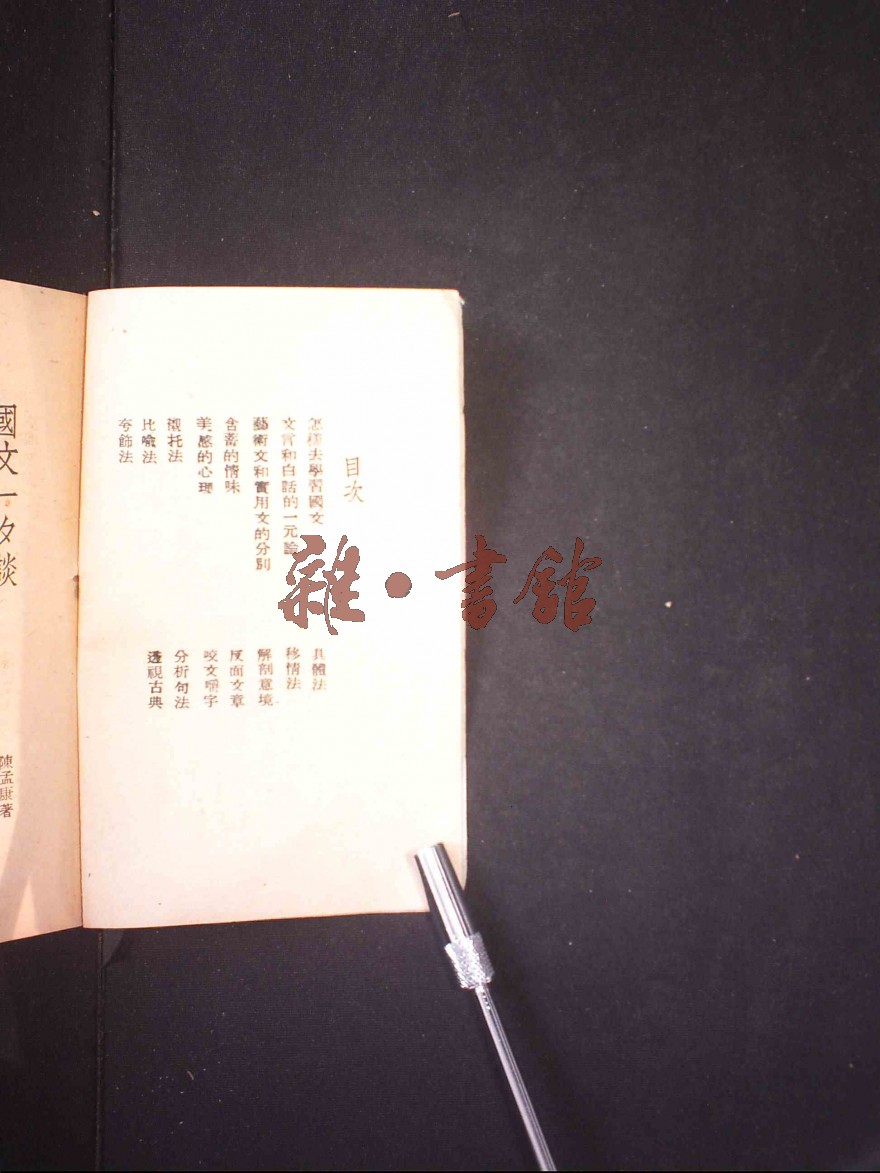 目次
怎樣去學習國文
文言和白話的一元論
藝術文和實用文的分別
含蓄的情味
美感的心理
襯托法
比喻法
夸飾法
具體法
移情法
解剖意境
反面文章
咬文嚼字
分析句法
透視古典
國文一夕談
陳孟康著
雜·書館